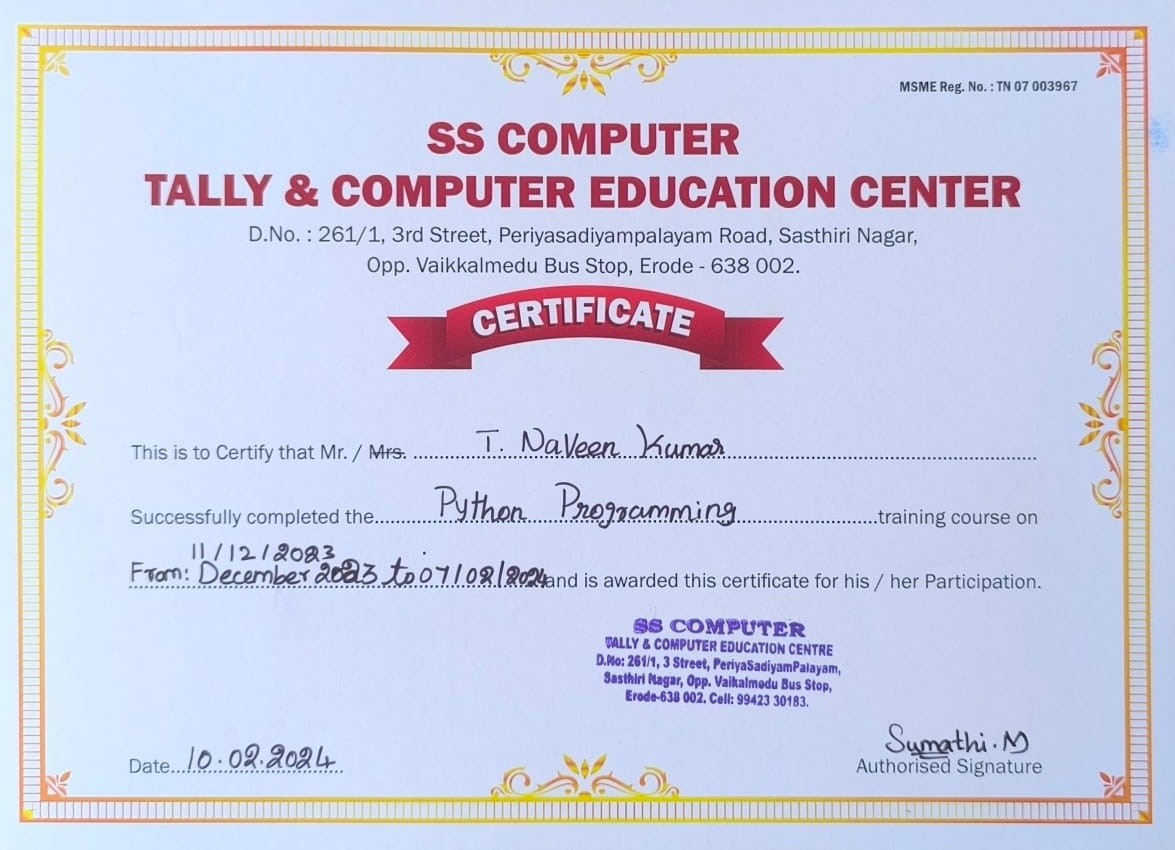 MSME Reg. No. : TN 07 003967
SS COMPUTER
TALLY & COMPUTER EDUCATION CENTER
D.No. : 261/1, 3rd Street, Periyasadiyampalayam Road, Sasthiri Nagar,
Opp. Vaikkalmedu Bus Stop, Erode - 638 002.
CERTIFICATE
This is to Certify that Mr. / Mrs. T. Naveen Kumar
Successfully completed the Python Programming training course on
11/12/2023
From: December 2023 to 07/02/2024 and is awarded this certificate for his / her Participation.
SS COMPUTER
TALLY & COMPUTER EDUCATION CENTRE
D.No: 261/1, 3 Street, PeriyaSadiyamPalayam,
Sasthiri Nagar, Opp. Vaikalmedu Bus Stop,
Erode-638 002. Cell: 99423 30183.
Sumathi. M
Date 10.02.2024
Authorised Signature